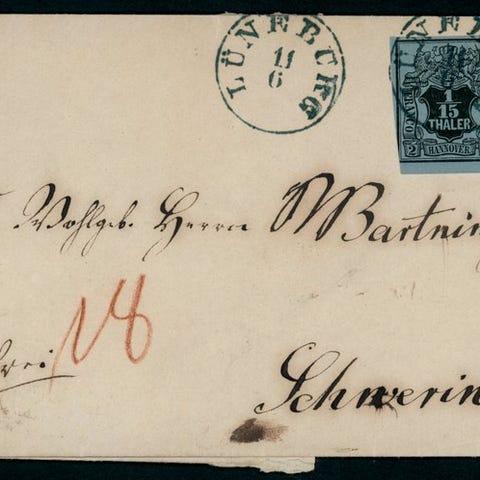 LÜNEBURG
11
6
FRANCO
1
15
THALER
2 HANNOVER
Wohlgeb. Herrn Bartning
frei
18
Schwerin